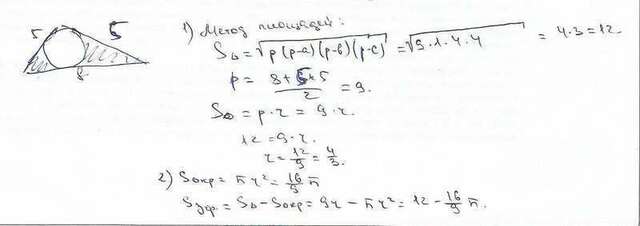 5 5
8
1) Метод площадей:
S△ = √p(p-a)(p-b)(p-c) = √9·1·4·4 = 4·3=12.
p = 8+5+5/2 = 9.
S△ = p·r = 9·r.
12 = 9·r.
r = 12/9 = 4/3.
2) Sокр = πr² = 16/9 π
Sз.ф. = S△ - Sокр = 9r - πr² = 12 - 16/9 π.